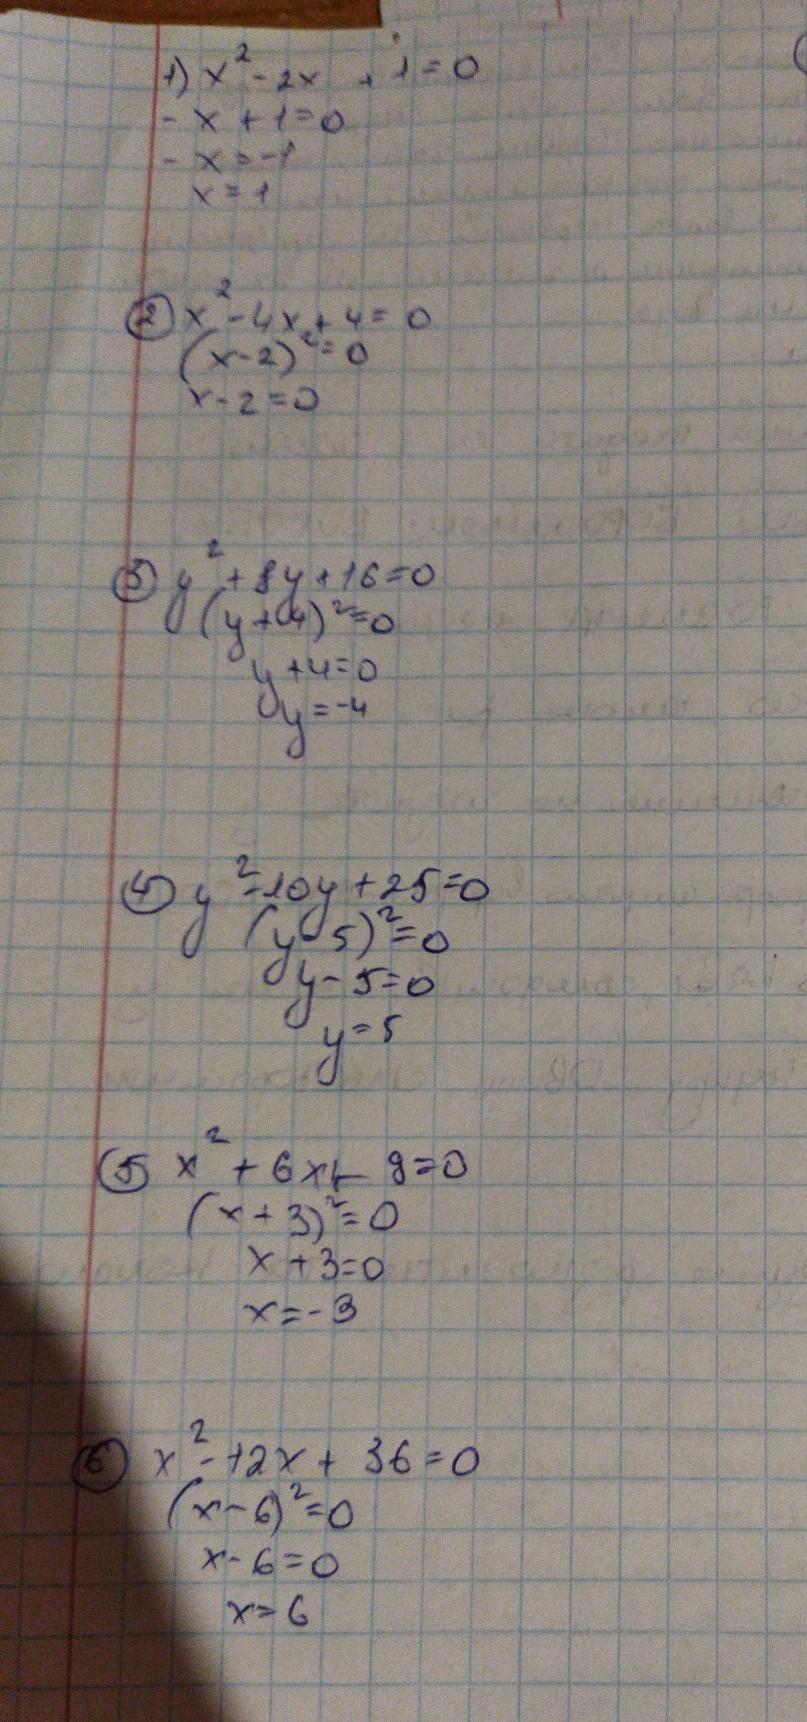 1) x² - 2x + 1 = 0
- x + 1 = 0
- x = -1
x = 1
2) x² - 4x + 4 = 0
(x - 2)² = 0
x - 2 = 0
3) y² + 8y + 16 = 0
(y + 4)² = 0
y + 4 = 0
y = -4
4) y² - 10y + 25 = 0
(y - 5)² = 0
y - 5 = 0
y = 5
5) x² + 6x + 9 = 0
(x + 3)² = 0
x + 3 = 0
x = -3
6) x² - 12x + 36 = 0
(x - 6)² = 0
x - 6 = 0
x = 6